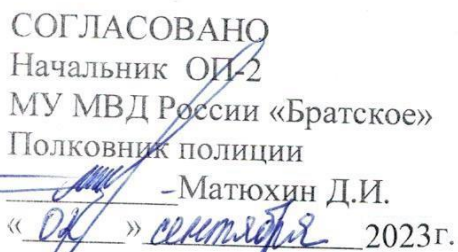 СОГЛАСОВАНО
Начальник ОП-2
МУ МВД России «Братское»
Полковник полиции
Матюхин Д.И.
« » сентября 2023г.